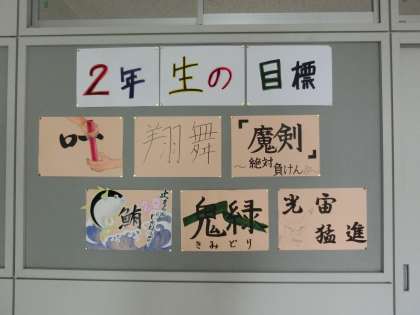 2年生の目標
叶
翔舞
「魔剣」
～絶対負けん～
鮪
鬼緑
きみどり
光宙
猛進